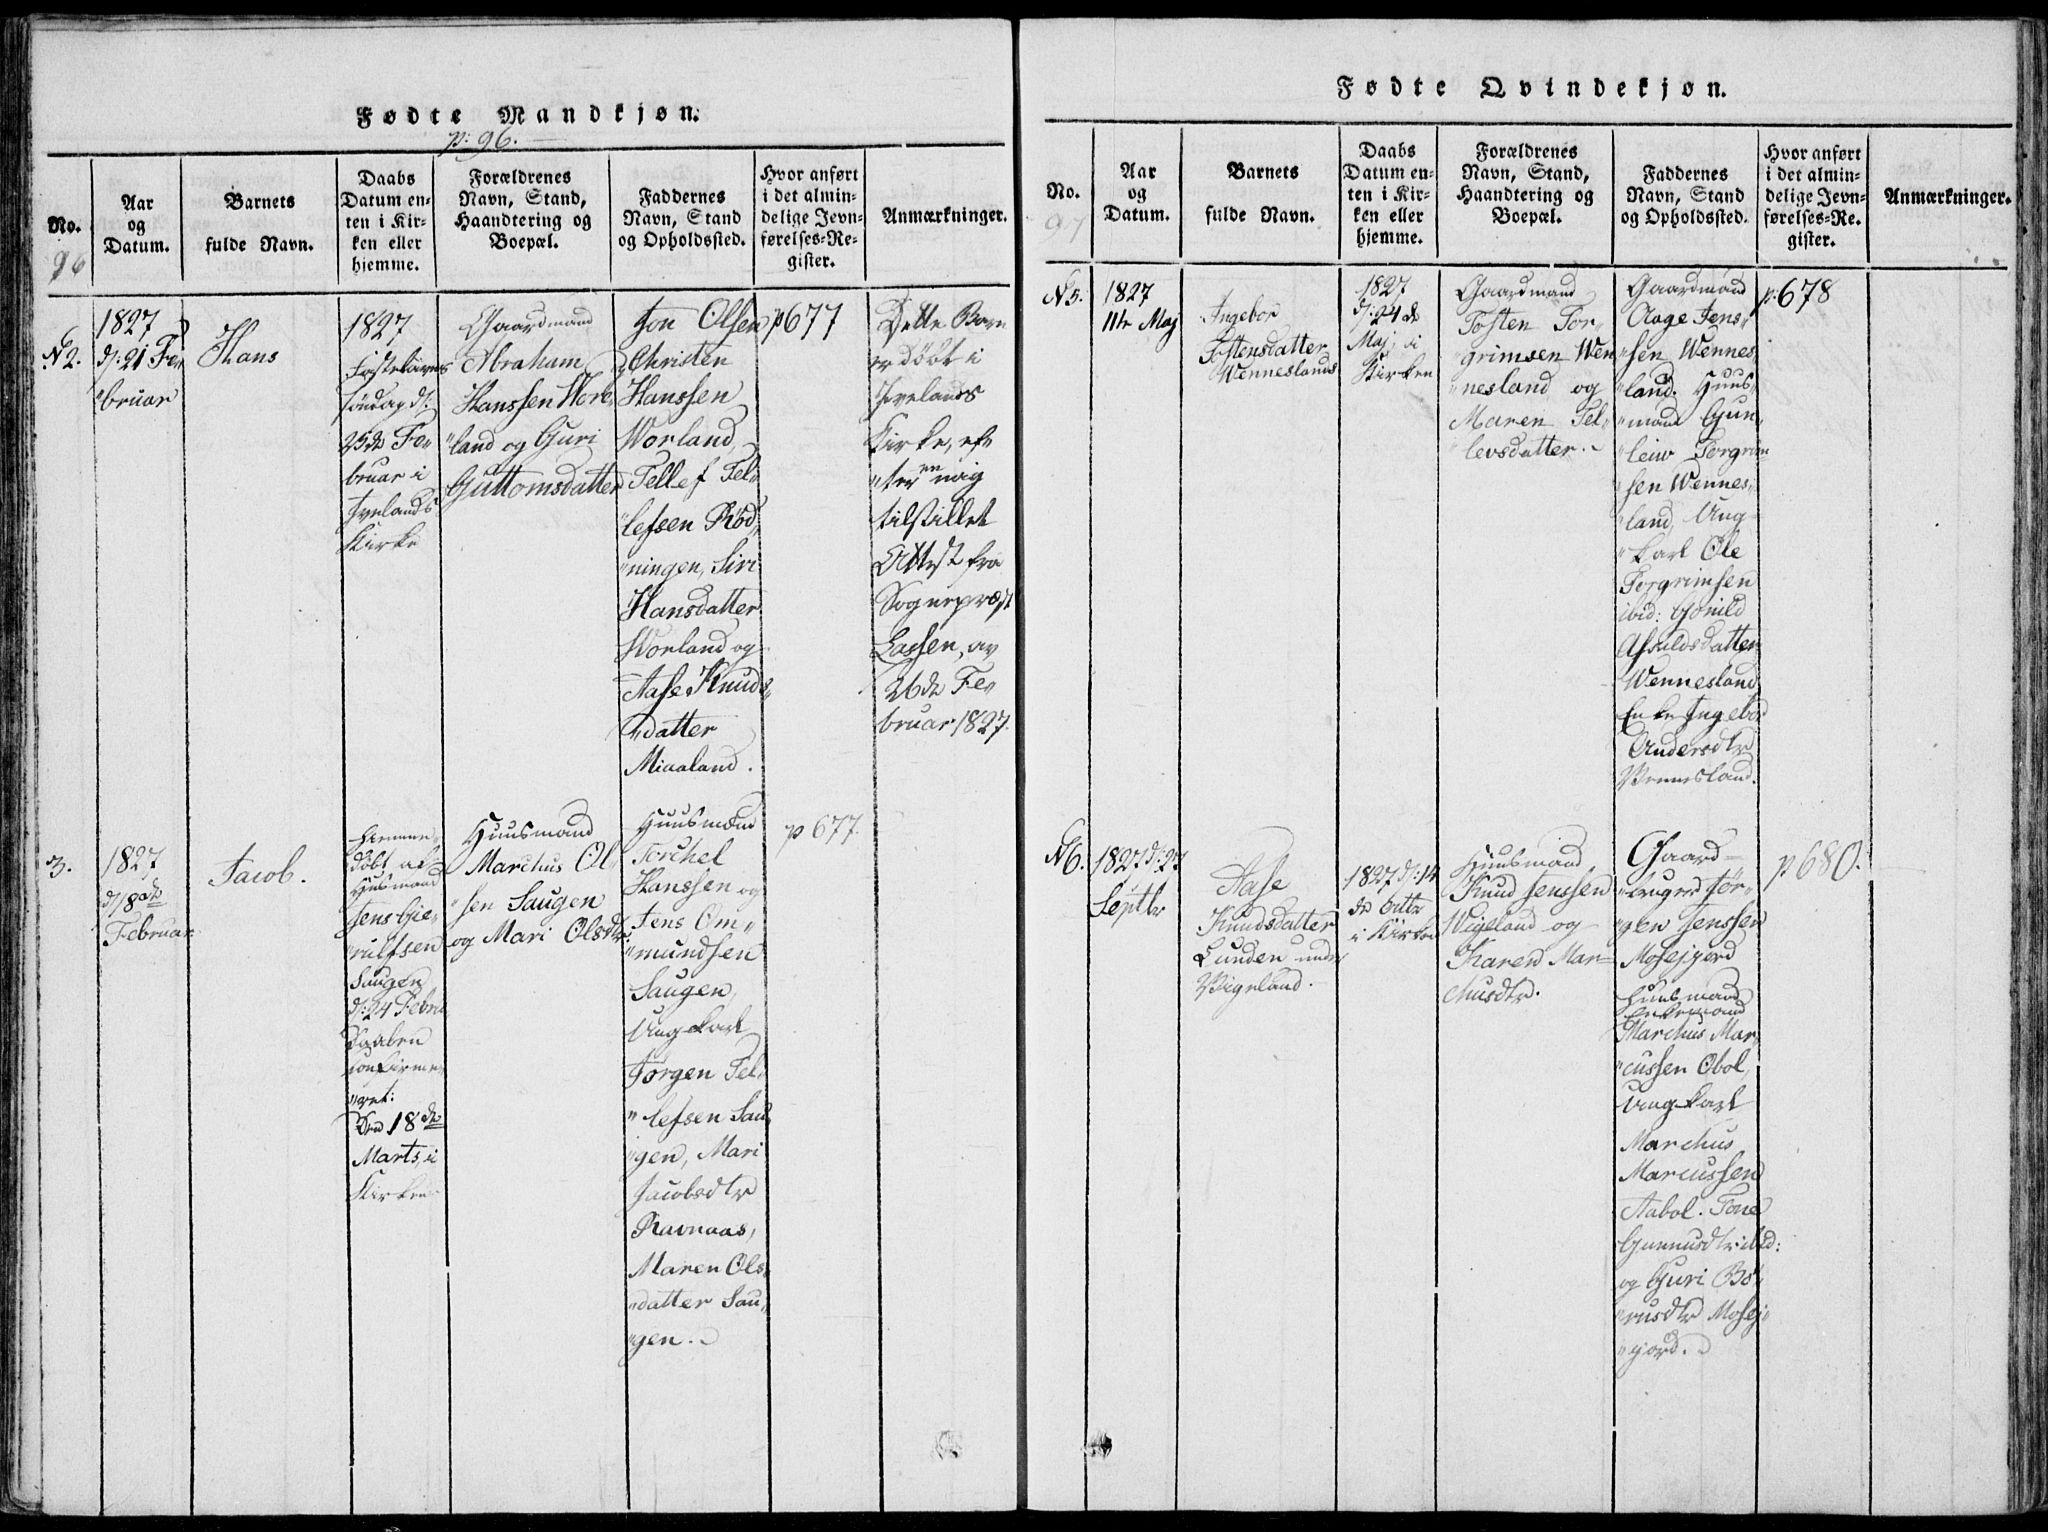 Fødte Mandkjøn.
p: 96.
No.
96
Aar
og
Datum.
Barnets
fulde Navn.
Daabs
Datum en-
ten i Kir-
ken eller
hjemme.
Forældrenes
Navn, Stand,
Haandtering og
Boepæl.
Faddernes
Navn, Stand
og Opholdssted.
Hvor anført
i det almin-
delige Jevn-
førelses-Re-
gister.
Anmærkninger.
N 2.
1827
d: 21 Fe„
„bruar
Hans
1827
Fastelavns
søndag d:
25de Fe„
bruar i
Ivelands
Kirke
Gaardmand
Abraham
Hanssen Wor„
„land og Guri
Guttomsdatter
Jon Olsen
Christen
Hanssen
Worland,
Tellef Tel„
„lefsen Röd„
„ningen, Siri
Hansdatter
Worland og
Aase Knuds„
„datter
Miaaland.
p 677
Dette Barn
er döbt i
Ivelands
Kirke, ef„
„ter en mig
tilstillet
Attest fra
Sognepræst
Lassen, av
26de Fe„
bruar 1827.
3.
1827
d 18de
Februar
Jacob.
Hiemme„
döbt af
Huusmand
Jens Gie„
„rulfsen
Saugen
d: 24 Febru
Daaben
confirme„
„ret:
Den 18de
Marts, i
Kirken
Huusmand
Marchus Ol„
„sen Saugen
og Mari Olsdtr.
Huusmænd
Torchel
Hanssen og
Jens Om„
„mundsen
Saugen,
Ungkarl
Jörgen Tel„
„lefsen Sau„
„gen, Mari
Jacobsdtr
Ravnaas,
Maren Ols„
„datter Sau„
„gen.
p 677.
Fødte Qvindekjøn.
No.
97
Aar
og
Datum.
Barnets
fulde Navn.
Daabs
Datum en-
ten i Kir-
ken eller
hjemme.
Forældrenes
Navn, Stand,
Haandtering og
Boepæl.
Faddernes
Navn, Stand
og Opholdssted.
Hvor anført
i det almin-
delige Jevn-
førelses-Re-
gister.
Anmærkninger.
N 5.
1827
11te Maj
Ingebor
Tostensdatter
Wenneslands
1827
d: 24de
Maj, i
Kirken
Gaardmand
Tosten Tor„
„grimsen Wen„
„nesland og
Maren Tel„
„levsdatter.
Gaardmand
Aage Jens„
„sen Wennes„
„land. Huus„
„mand Gun„
„leiv Torgrim
„sen Wennes„
„land, Ung„
„karl Ole
Torgrimsen
ibid: Gonild
Askildsdatter
Wennesland,
Enke Ingebor
Andersdtr
Wennesland.
p: 678
N 6.
1827 d: 27
Septbr
Aase
Knudsdatter
Lunden under
Wigeland.
1827 d: 14
de Octbr
i Kirken
Huusmand
Knud Jenssen
Wigeland og
Karen Mar„
chusdtr.
Gaard„
„bruger Jör„
„gen Jenssen
Mosejgord
Huusmand
Enkemand
Marchus Mar„
„cussen Obol,
Ungkarl
Marchus
Marcussen
Aabol. Tone
Gunnusdtr ibid:
og Guri Bö„
„rusdtr Mosej„
„gjord.
p 680.